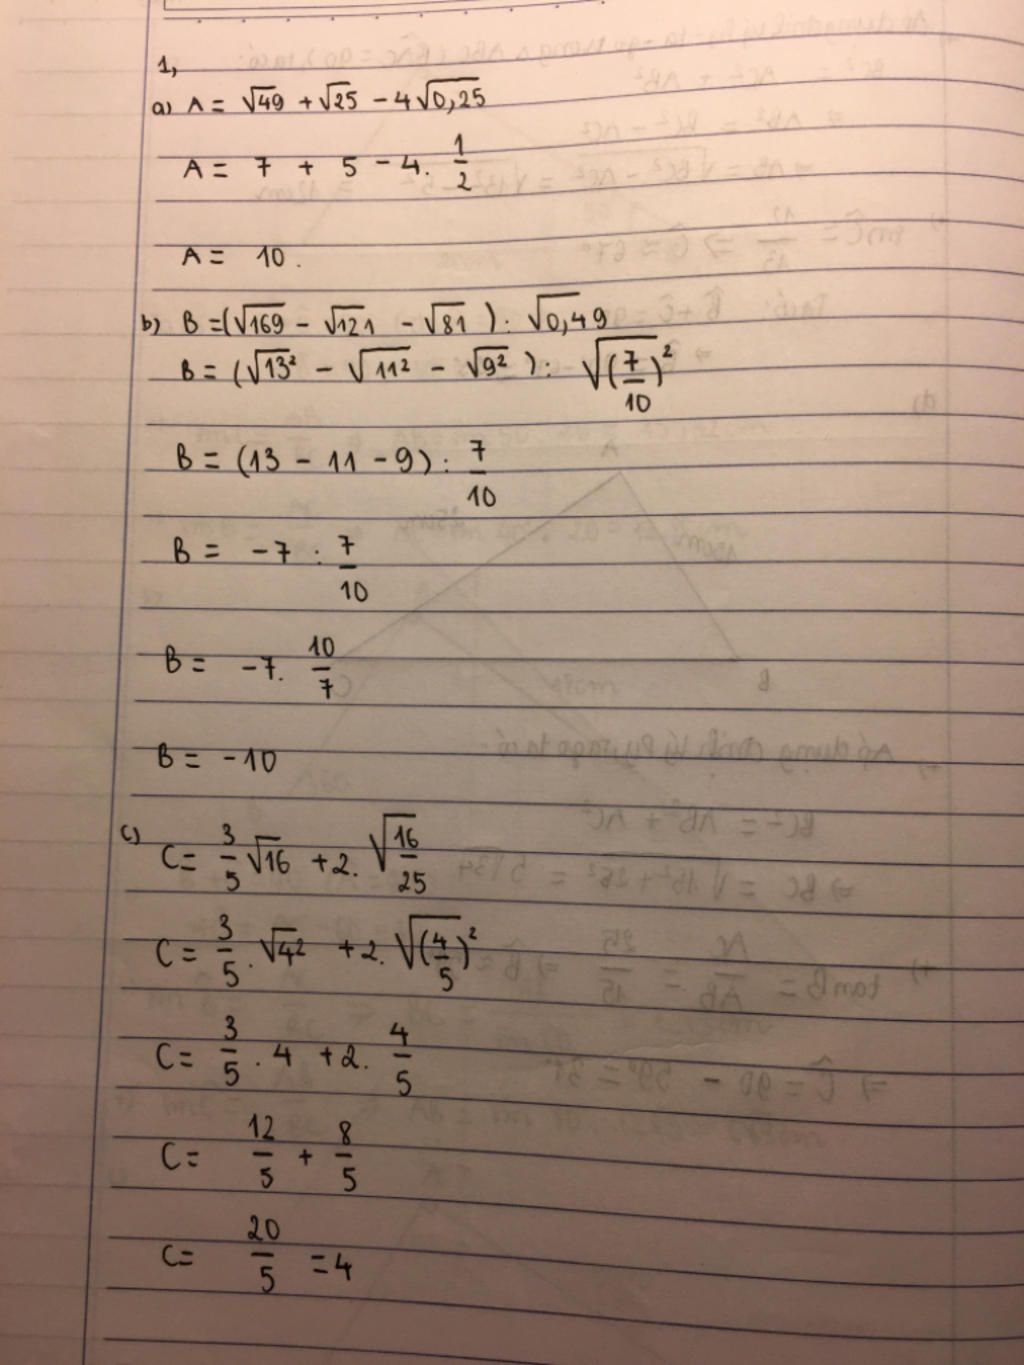 1,
a) A = √49 + √25 - 4√0,25
A = 7 + 5 - 4. 1/2
A = 10.
b) B = (√169 - √121 - √81) : √0,49
B = (√13² - √11² - √9²) : √(7/10)²
B = (13 - 11 - 9) : 7/10
B = -7 : 7/10
B = -7. 10/7
B = -10
c) C = 3/5 √16 + 2. √16/25
C = 3/5 . √4² + 2. √(4/5)²
C = 3/5 . 4 + 2. 4/5
C = 12/5 + 8/5
C = 20/5 = 4